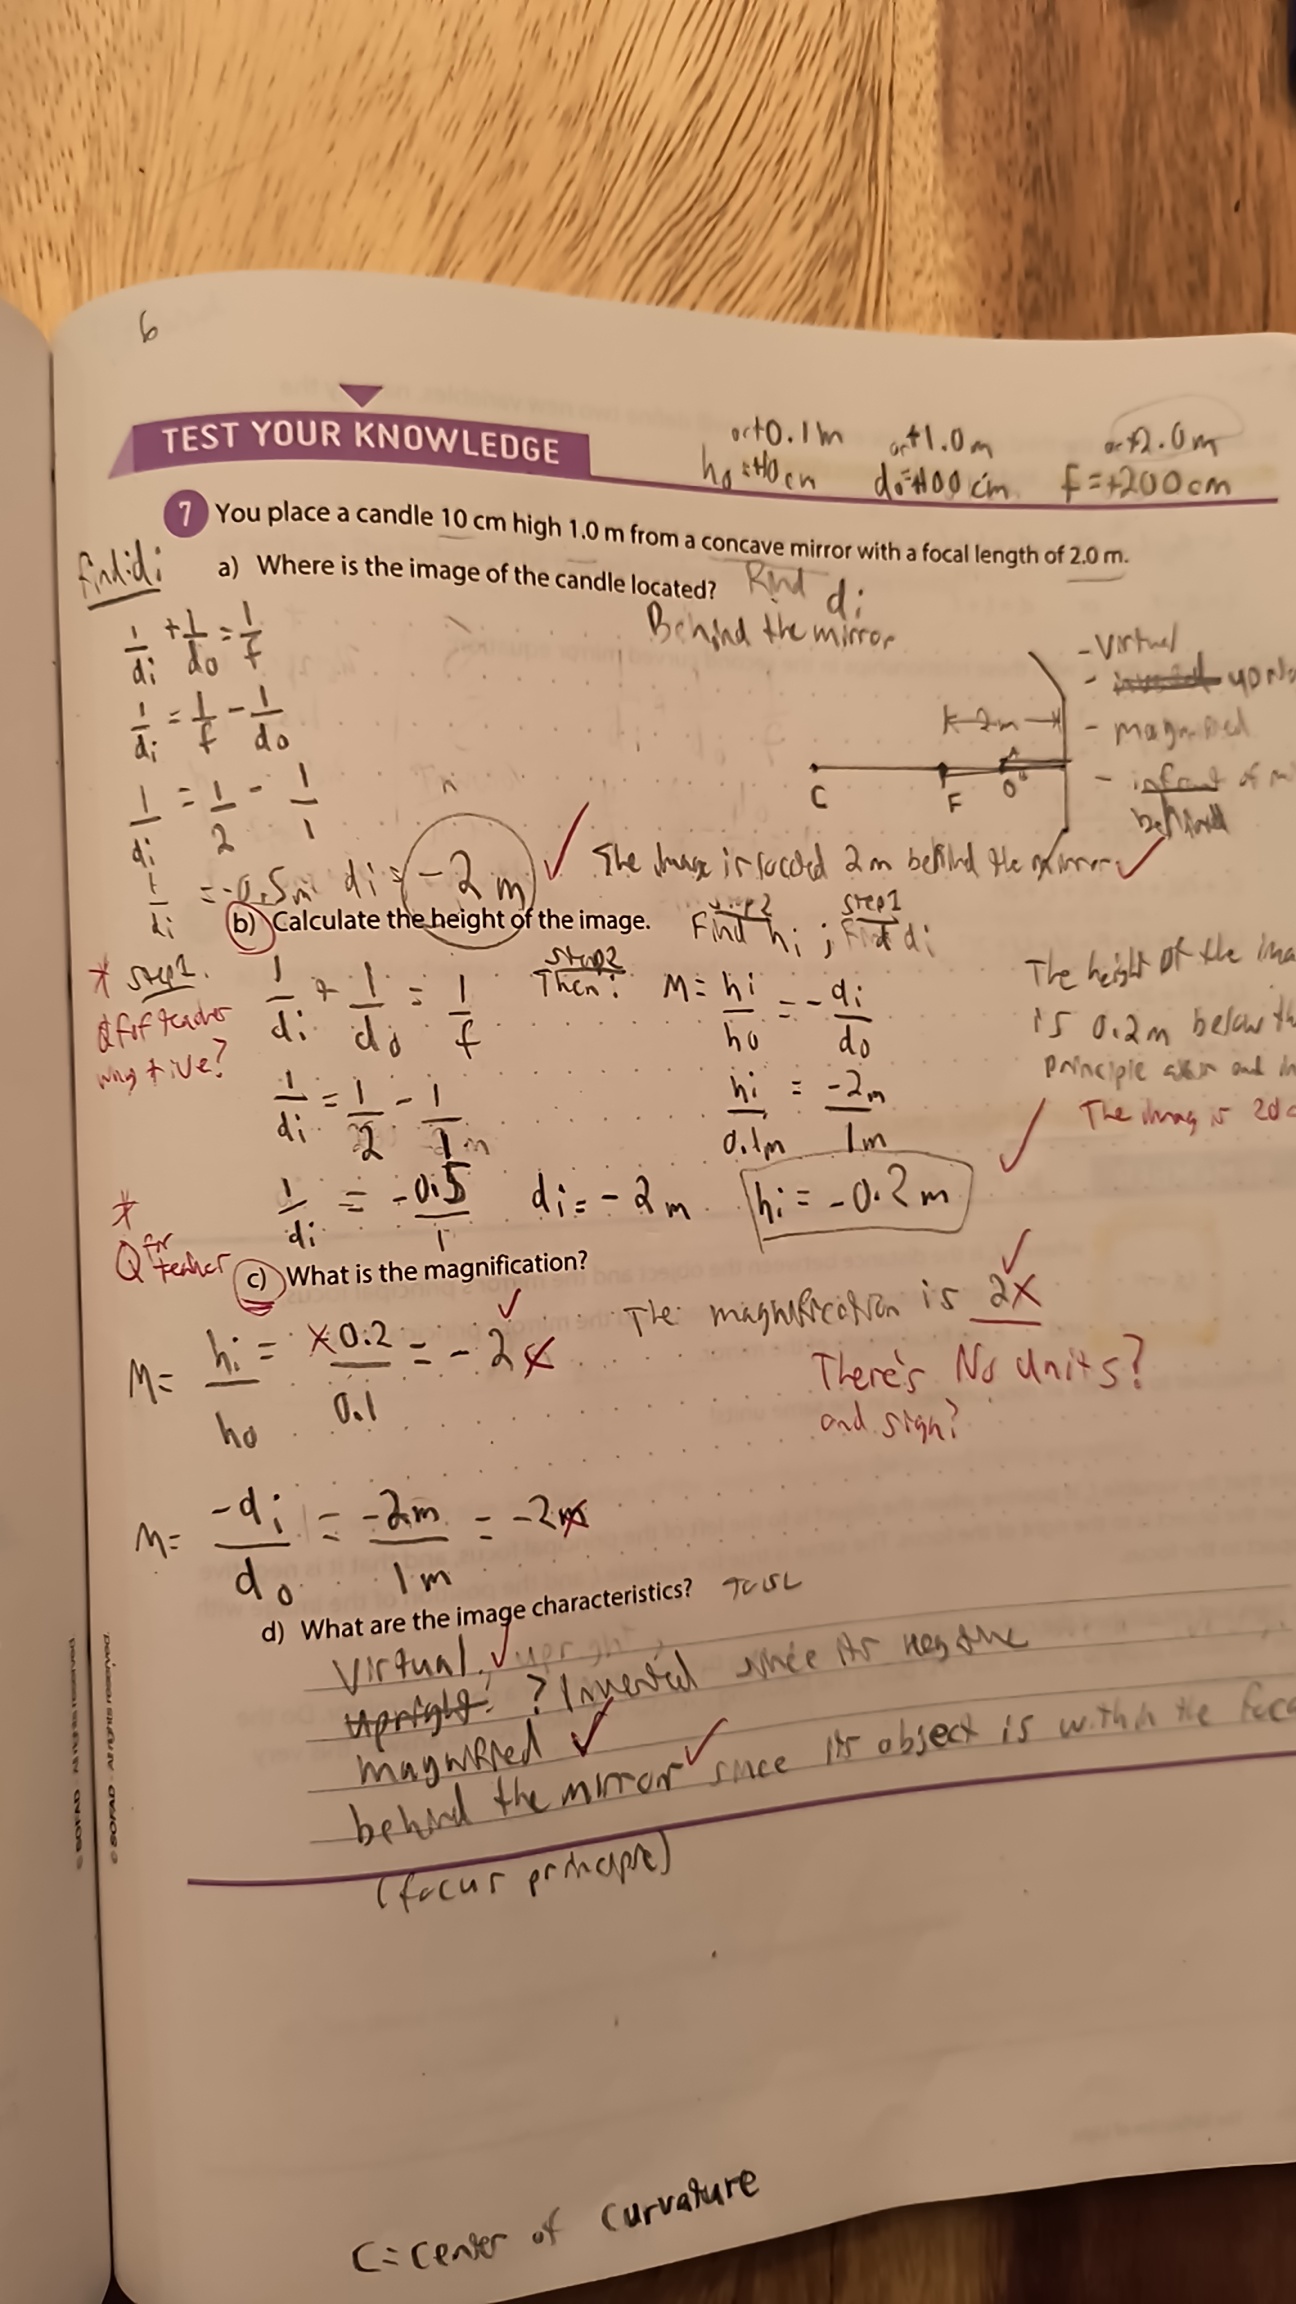 6
TEST YOUR KNOWLEDGE
or +0.1m or +1.0m or +2.0m
ho = +10cm do = +100cm f = +200cm
7 You place a candle 10 cm high 1.0 m from a concave mirror with a focal length of 2.0 m.
find: di
a) Where is the image of the candle located? Find di
Behind the mirror
1/di + 1/do = 1/f
1/di = 1/f - 1/do
1/di = 1/2 - 1/1
- Virtual
- magnified
- infront of
behind
2m
C F O
1/di = -0.5m di = -2m The image is located 2m behind the mirror
b) Calculate the height of the image. step 2 Find hi ; step 1 Find di
* step 1.
Q for teacher
why +ive?
1/di + 1/do = 1/f
1/di = 1/2 - 1/1m
1/di = -0.5/1 di = -2m
step 2
Then: M = hi/ho = -di/do
hi/0.1m = -2m/1m
hi = -0.2m
The height of the
is 0.2m below
principle axis and
The imag is
* Q for teacher
c) What is the magnification?
M = hi/ho = 0.2/0.1 = -2
The magnification is 2X
There's No units?
and sign?
M = -di/do = -2m/1m = -2m
d) What are the image characteristics?
Virtual, upright,
upright ? Inverted since its negative
magnified
behind the mirror since its object is within the
(focus principle)
C = center of curvature
© SOFAD